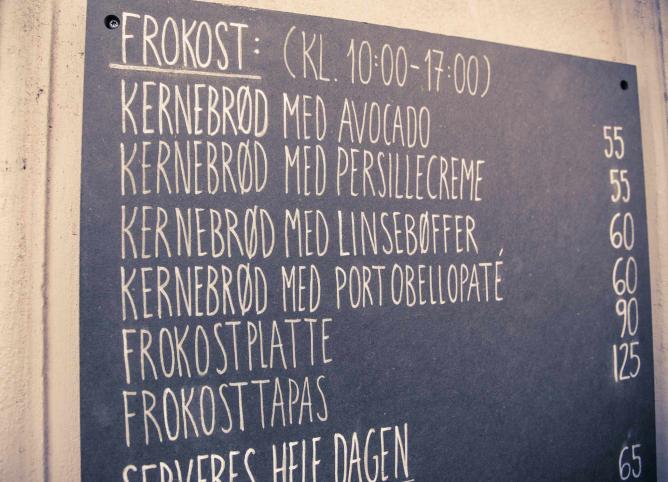 FROKOST: (KL. 10:00-17:00)
KERNEBRØD MED AVOCADO 55
KERNEBRØD MED PERSILLECREME 55
KERNEBRØD MED LINSEBØFFER 60
KERNEBRØD MED PORTOBELLOPATÉ 60
FROKOSTPLATTE 90
FROKOSTTAPAS 125
SERVERES HELE DAGEN
65